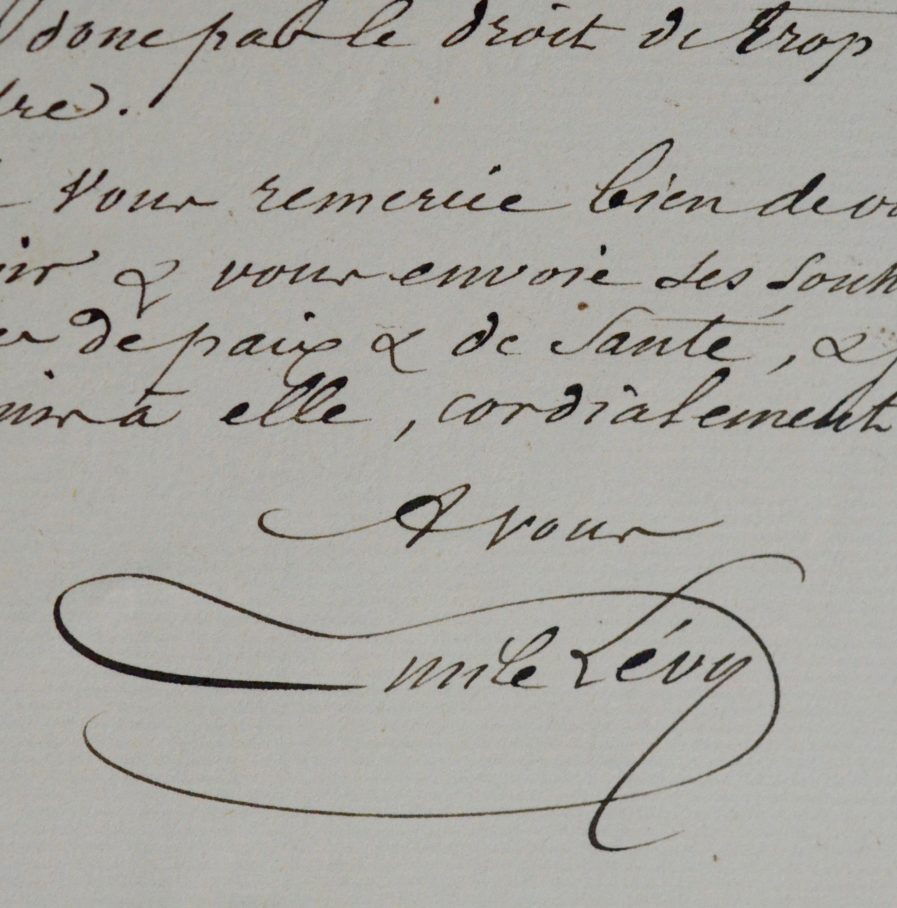 donc pas le droit de trop
dre.
vous remercie bien de vo
ir & vous envoie ses souh
de paix & de santé, &
nir à elle, cordialement
A vous
Emile Lévy